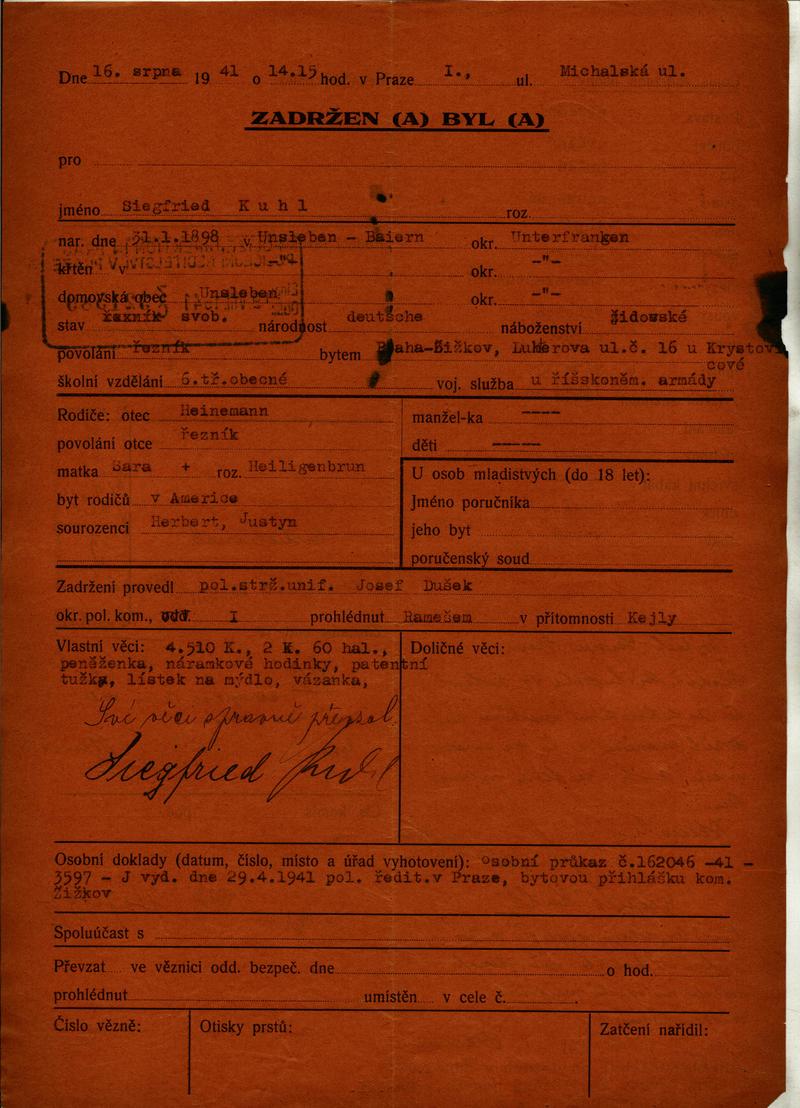 Dne 16. srpna 19 41 o 14.15 hod. v Praze I., ul. Michalská ul.
ZADRŽEN (A) BYL (A)
pro
jméno Siegfried Kuhl roz.
nar. dne 31.1.1898 v Unsleben - Baiern okr. Unterfranken
křtěn v -"- okr. -"-
domovská obec Unsleben okr. -"-
stav svob. národnost deutsche náboženství židovské
povolání řezník bytem Praha-Žižkov, Lukerova ul.č. 16 u Krystovi
cové
školní vzdělání 5.tř.obecné voj. služba u říšskoněm. armády
Rodiče: otec Heinemann manžel-ka ----
povolání otce řezník děti ----
matka Sara + roz. Heiligenbrun U osob mladistvých (do 18 let):
byt rodičů v Americe Jméno poručníka
sourozenci Herbert, Justyn jeho byt
poručenský soud
Zadržení provedl pol.strž.unif. Josef Dušek
okr. pol. kom., odd. I prohlédnut Ramešem v přítomnosti Kejly
Vlastní věci: 4.510 K., 2 K. 60 hal., Doličné věci:
peněženka, náramkové hodinky, patentní
tužka, lístek na mýdlo, vázanka,
Své věci správně přepsal.
Siegfried Kuhl
Osobní doklady (datum, číslo, místo a úřad vyhotovení): osobní průkaz č.162046 -41 -
3597 - J vyd. dne 29.4.1941 pol. ředit.v Praze, bytovou přihlášku kom.
Žižkov
Spoluúčast s
Převzat ve věznici odd. bezpeč. dne o hod.
prohlédnut umístěn v cele č.
Číslo vězně: Otisky prstů: Zatčení nařídil: